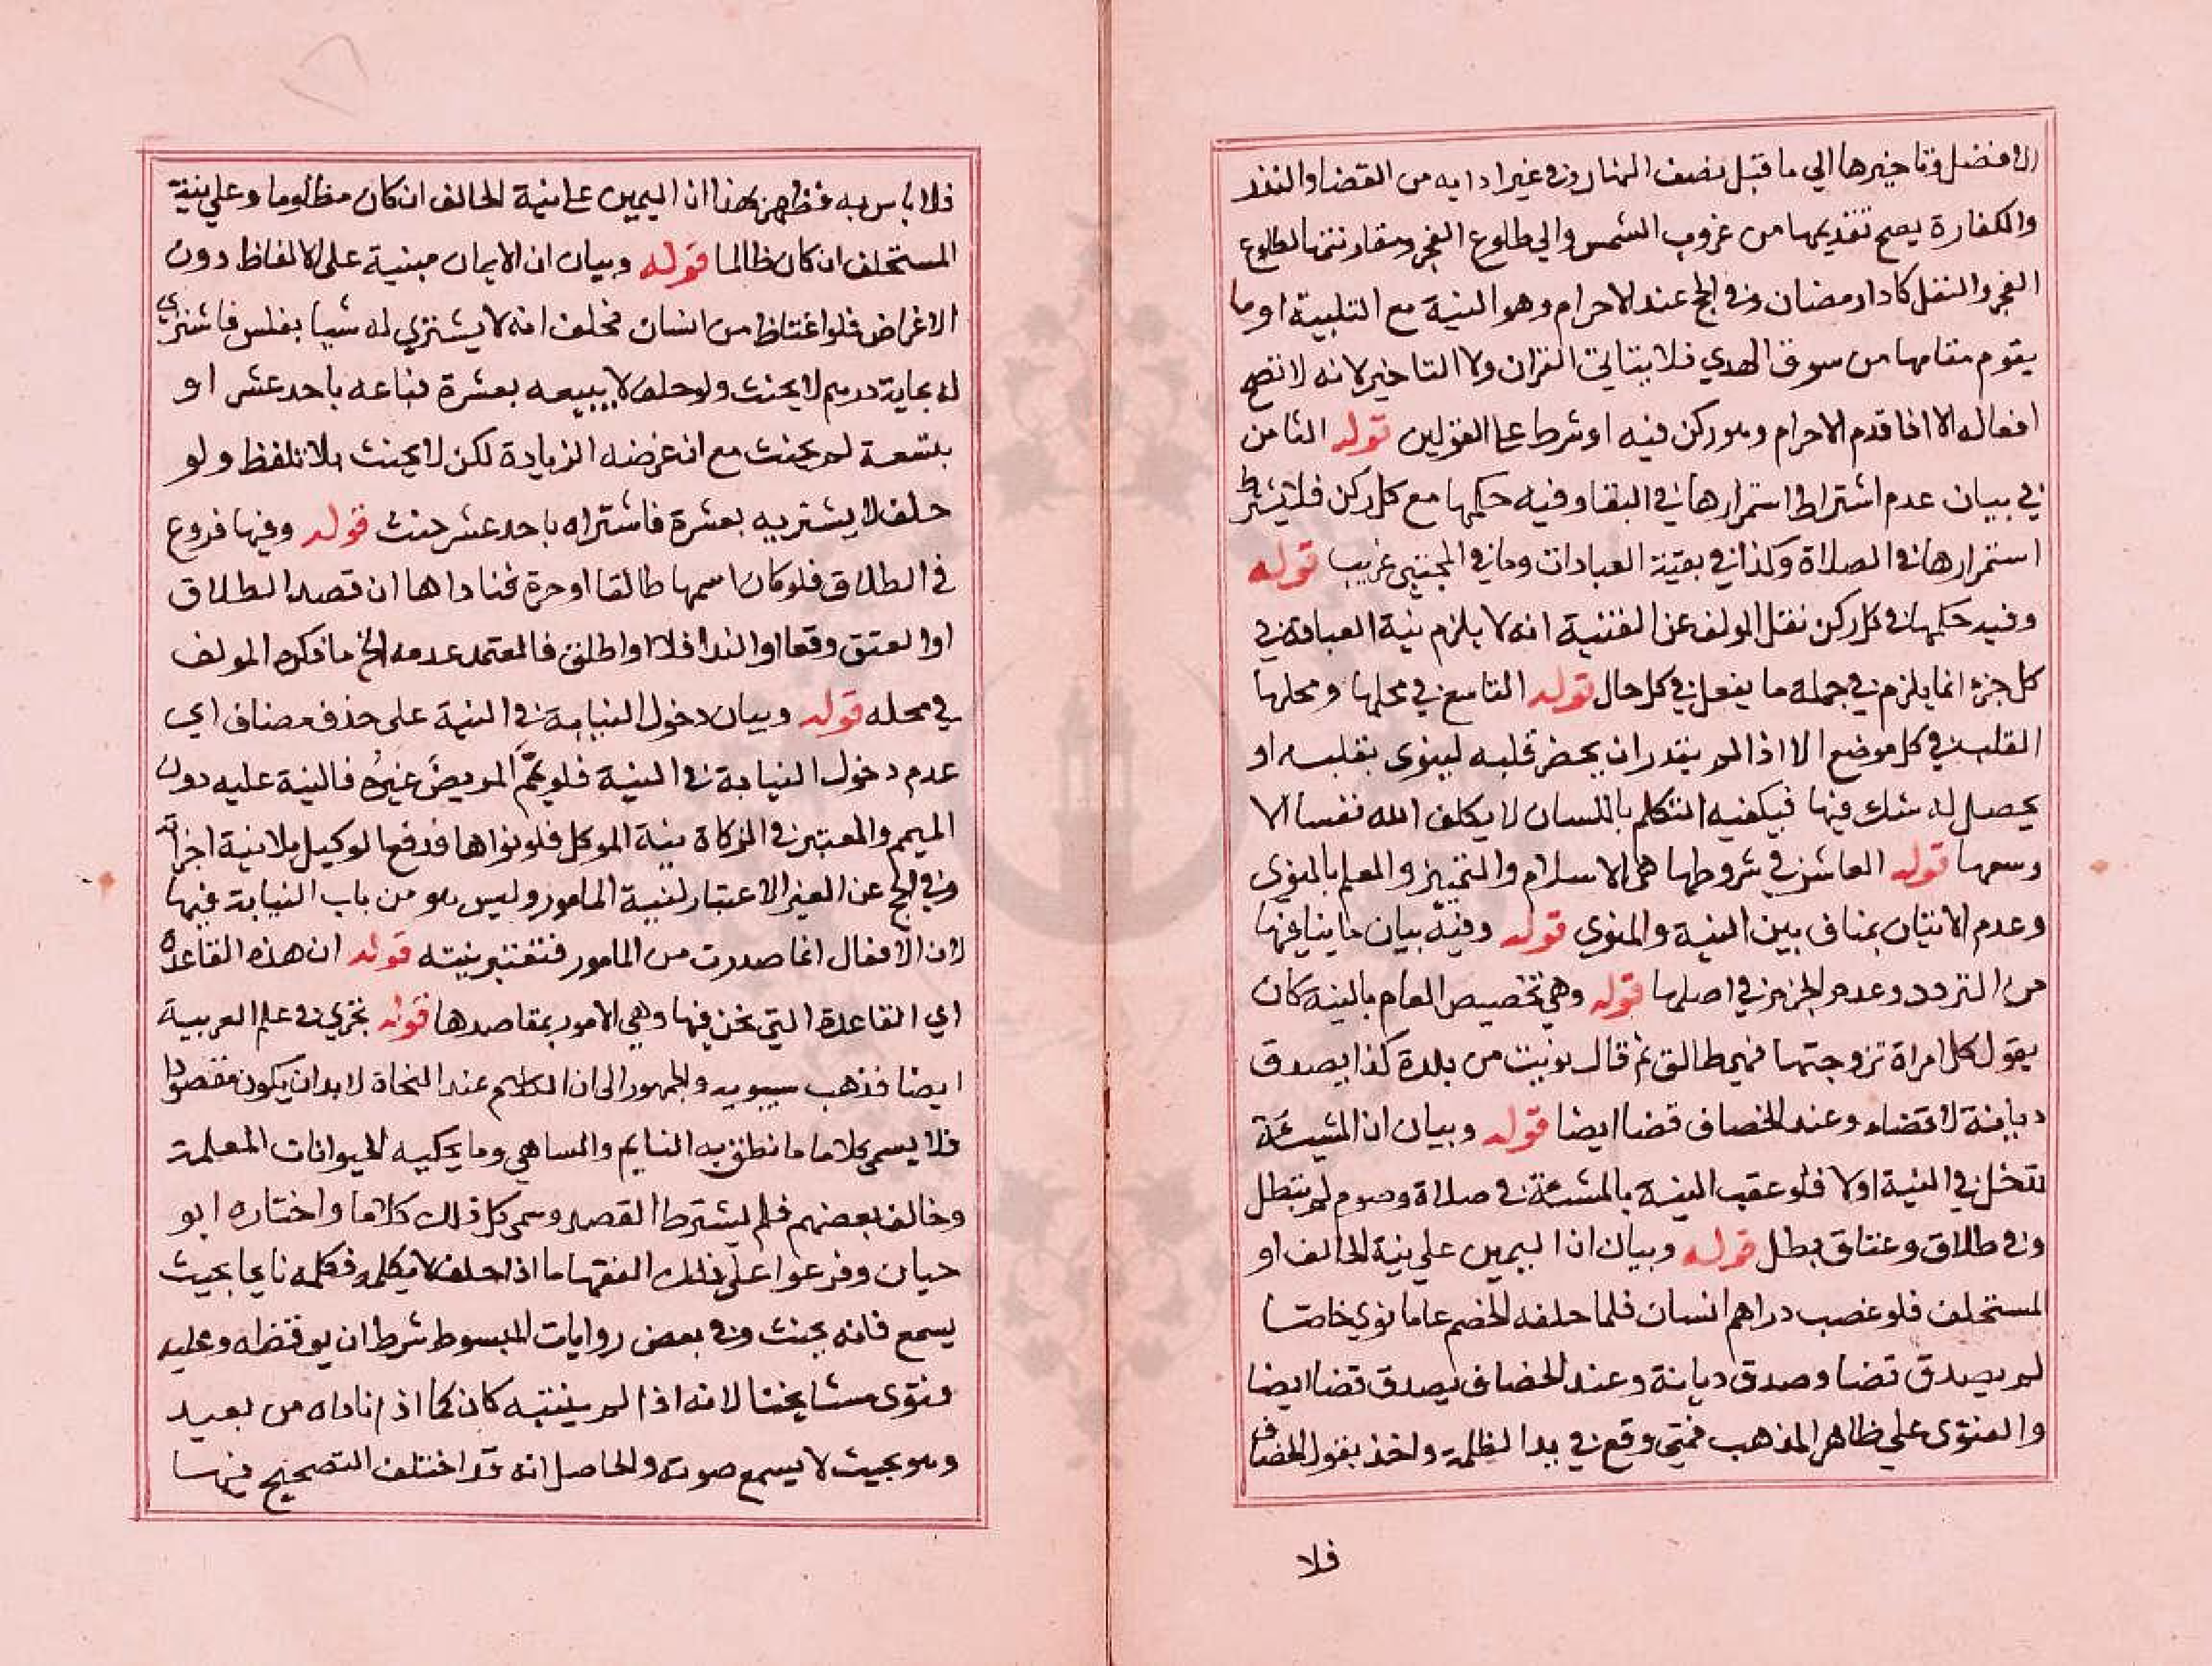 الافضل وتاخيرها الي ما قبل نصف النهار وفي غير ادايه من القضا والنذر
والكفارة يصح تقديمها من غروب الشمس والي طلوع الفجر ومقارنتها لطلوع
الفجر والنفل كادا رمضان وفي الحج عند الاحرام وهو النية مع التلبية او ما
يقوم مقامها من سوق الهدي فلا يتاتي القران ولا التاخير لانه لا تصح
افعاله الا اذا قدم الاحرام وهو ركن فيه او شرط علي القولين قوله الثامن
في بيان عدم اشتراط استمرارها في البقا وفيه حكمها مع كل ركن فلا يشترط
استمرارها في الصلاة وكذا في بقية العبادات وما في المجتبى غريب قوله
وفيه حكمها في كل ركن نقل المولف عن القنية انه لا يلزم نية العبادة في
كل جزء انما يلزم في جملة ما يفعل في كل حال قوله التاسع في محلها ومحلها
القلب في كل موضع الا اذا لم يقدر ان يحضر قلبه لينوى بقلبه او
يحصل له شك فيها فيكفيه التكلم باللسان لا يكلف الله نفسا الا
وسعها قوله العاشر في شروطها هي الاسلام والتمييز والعلم بالمنوى
وعدم الاتيان بمناف بين النية والمنوى قوله وفيه بيان ما ينافيها
من التردد وعدم الجزم في اصلها قوله وهي تخصيص العام بالنية كان
يقول كل امراة تزوجتها فهي طالق ثم قال نويت من بلدة كذا يصدق
ديانة لا قضاء وعند الخصاف قضا ايضا قوله وبيان ان المشيئة
تدخل في النية اولا فلو عقب النية بالمشئة في صلاة وصوم لم تبطل
وفي طلاق وعتاق بطل قوله وبيان ان اليمين علي نية الحالف او
المستحلف فلو غصب دراهم انسان فلما حلفه الخصم عاما نوي خاصا
لم يصدق قضا وصدق ديانة وعند الخصاف يصدق قضا ايضا
والفتوى علي ظاهر المذهب فمتي وقع في يد الظلمة واخذ بقول الخصاف
فلا
فلا باس به فظهر بهذا ان اليمين علي نية الحالف ان كان مظلوما وعلي نية
المستحلف ان كان ظالما قوله وبيان ان الايمان مبنية علي الالفاظ دون
الاغراض فلو اغتاظ من انسان فحلف انه لا يشتري له شيا بفلس فاشترى
له بماية درهم لا يحنث ولو حلف لا يبيعه بعشرة فباعه باحد عشر او
بتسعة لم يحنث مع ان غرضه الزيادة لكن لا يحنث بلا تلفظ ولو
حلف لا يشتريه بعشرة فاشتراه باحد عشر حنث قوله وفيها فروع
في الطلاق فلو كان اسمها طالقا او حرة فناداها ان قصد الطلاق
او العتق وقعا او الندا فلا او اطلق فالمعتمد عدمه الخ ما ذكره المولف
في محله قوله وبيان دخول النيابة في النية علي حذف مضاف اي
عدم دخول النيابة في النية فلو يمم المريض غيره فالنية عليه دون
الميمم والمعتبر في الزكاة نية الموكل فلو نواها فدفع الوكيل بلا نية اجزاته
وفي الحج عن الغير الاعتبار لنية المامور وليس هو من باب النيابة فيها
لان الافعال انما صدرت من المامور فتعتبر نيته قوله ان هذه القاعدة
اي القاعدة التي نحن فيها وهي الامور بمقاصدها قوله تجري في علم العربية
ايضا فذهب سيبويه والجمهور الى ان الكلام عند النحاة لا بد ان يكون مقصودا
فلا يسمى كلاما ما نطق به النايم والساهي وما يحكيه الحيوانات المعلمة
وخالف بعضهم فلم يشترط القصد وسمى كل ذلك كلاما واختاره ابو
حيان وفرعوا علي ذلك الفقها ما اذا حلف لا يكلمه فكلمه نايما بحيث
يسمع فانه يحنث وفي بعض روايات المبسوط شرط ان يوقظه وعليه
فتوى مشايخنا لانه اذا لم ينتبه كان كما اذا ناداه من بعيد
وهو بحيث لا يسمع صوته والحاصل انه قد اختلف التصحيح فيها